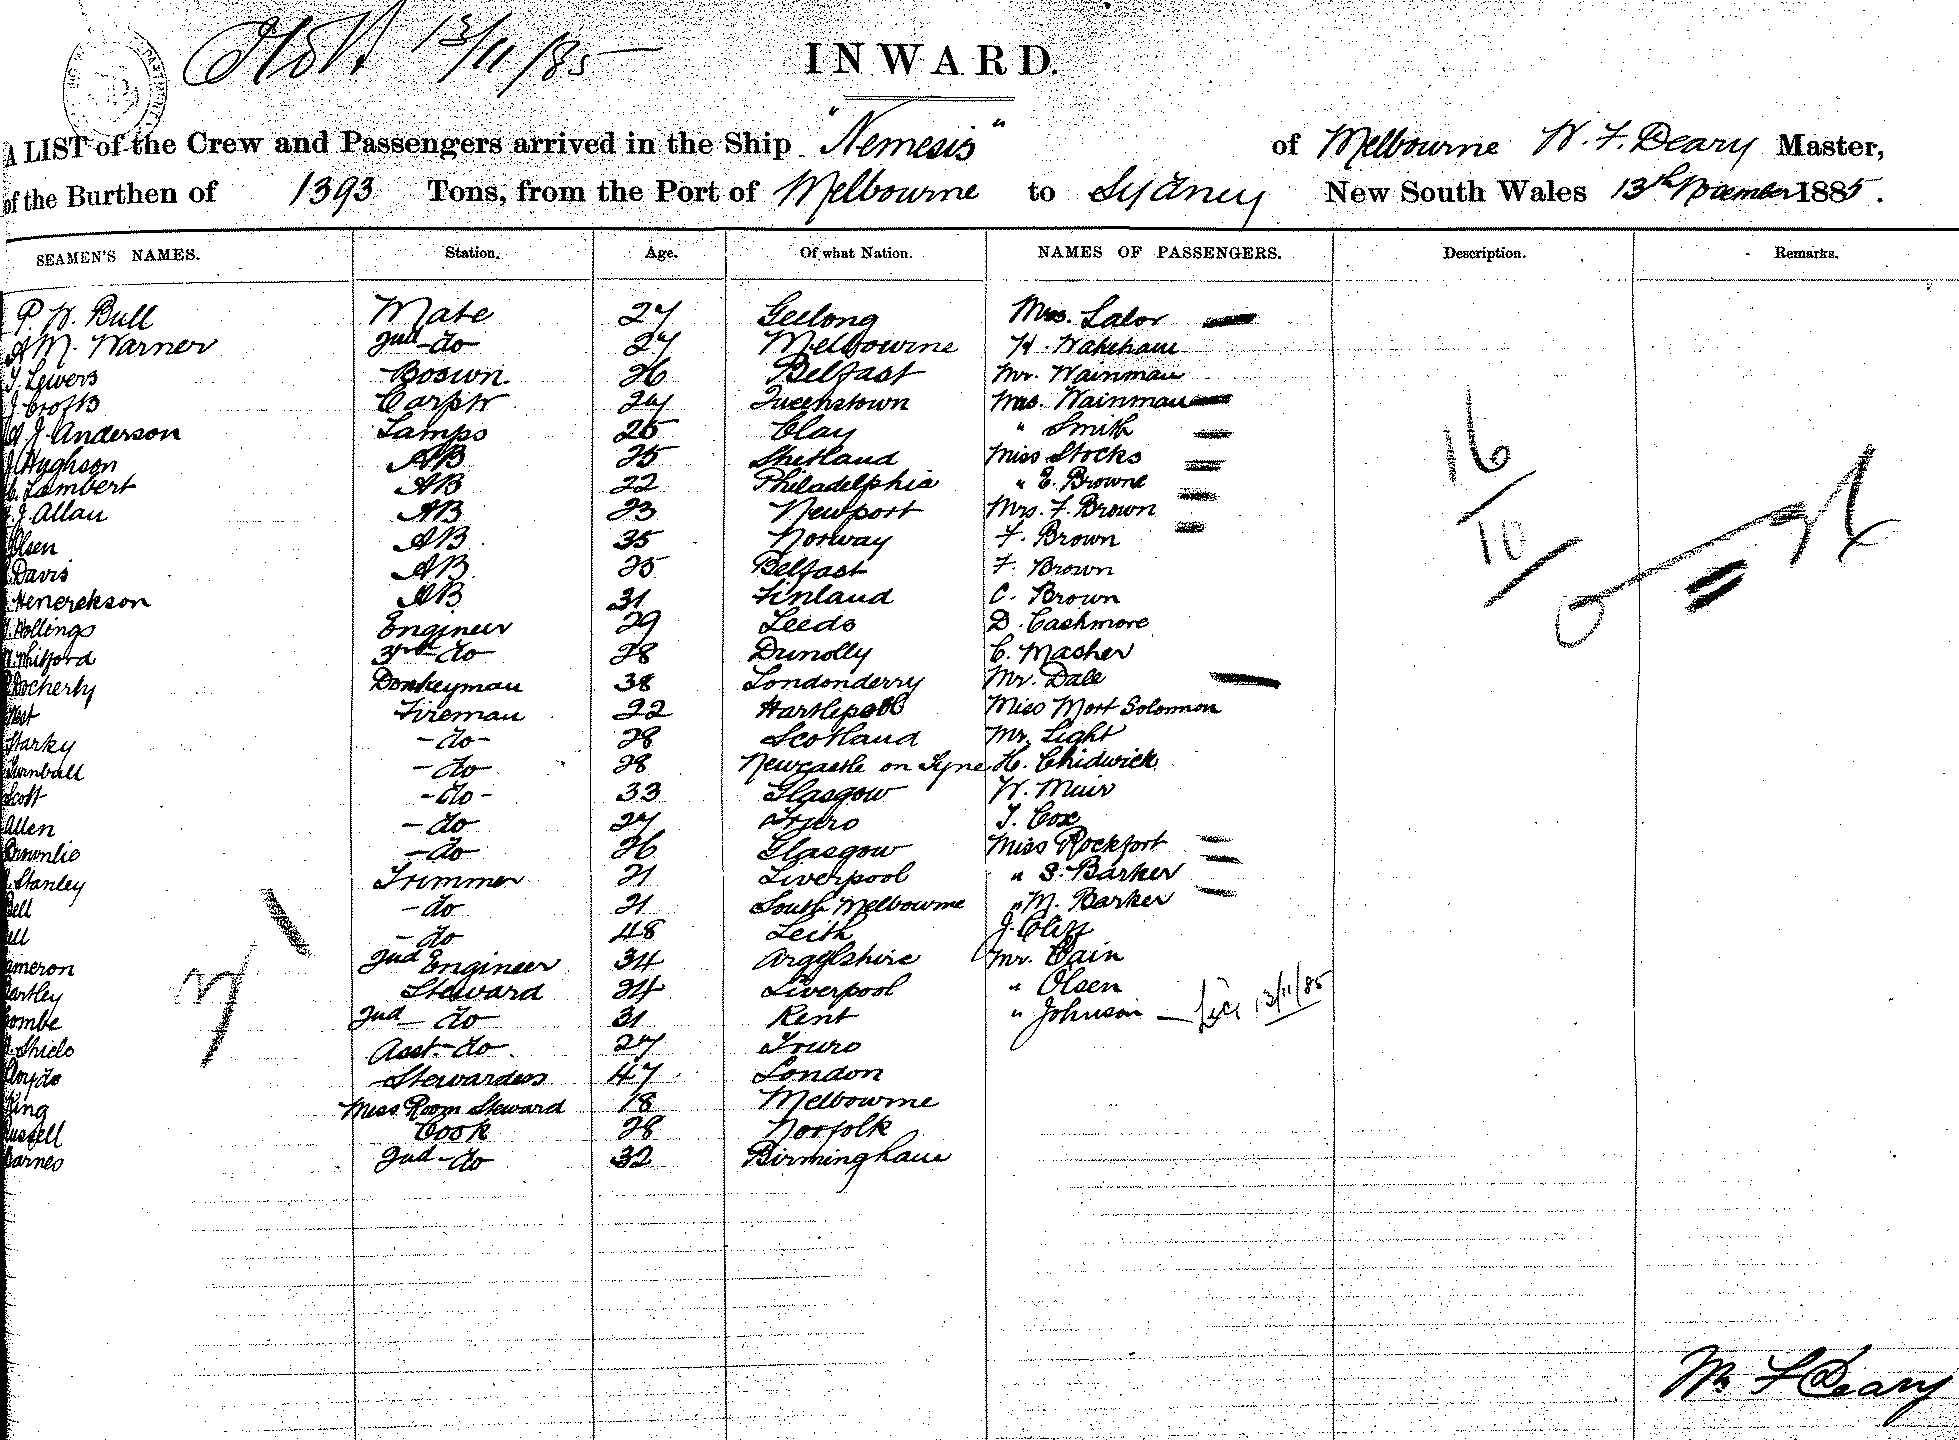 13/11/85
INWARD.
A LIST of the Crew and Passengers arrived in the Ship "Nemesis" of Melbourne W. F. Deary Master,
of the Burthen of 1393 Tons, from the Port of Melbourne to Sydney New South Wales 13th November 1885.
SEAMEN'S NAMES. Station. Age. Of what Nation. NAMES OF PASSENGERS. Description. Remarks.
P. W. Bull Mate 27 Geelong Mrs. Lalor
A M. Warner 2nd do 27 Melbourne H. Wakeham
J. Lewers Boswn. 26 Belfast Mr. Wainman
J. Crofts Carptr 24 Queenstown Mrs. Wainman
A J. Anderson Lamps 25 Clay " Smith
J Hughson AB 25 Shetland Miss Stocks
C. Lambert AB 22 Philadelphia " E. Browne
J. Allan AB 23 Newport Mrs. F. Brown
Olsen AB 35 Norway F. Brown
Davis AB 25 Belfast F. Brown
Henerekson AB 31 Finland C. Brown
Hollings Engineer 29 Leeds D. Cashmore
Whitford 3rd do 28 Dunolly C. Masher
Docherty Donkeyman 38 Londonderry Mr. Dale
West Fireman 22 Hartlepool Miss Mort Solomon
Starky -do- 28 Scotland Mr. Light
Turnball -do 28 Newcastle on Tyne H. Chidwick
Scott -do- 33 Glasgow W. Muir
Allen -do 27 Truro T. Cox
Brownlie -do 26 Glasgow Miss Rockfort
Stanley Trimmer 21 Liverpool " S. Barker
Bell -do 21 South Melbourne " M. Barker
ell -do 48 Leith J. Cliff
ameron 2nd Engineer 34 Argylshire Mr. Cain
artley Steward 24 Liverpool " Olsen
ombe 2nd do 31 Kent " Johnson 13/11/85
Shiels Asst. do 27 Truro
loyds Stewardess 47 London
King Mess Room Steward 18 Melbourne
ussell Cook 28 Norfolk
arnes 2nd do 32 Birmingham
16
10
Wm F Deary